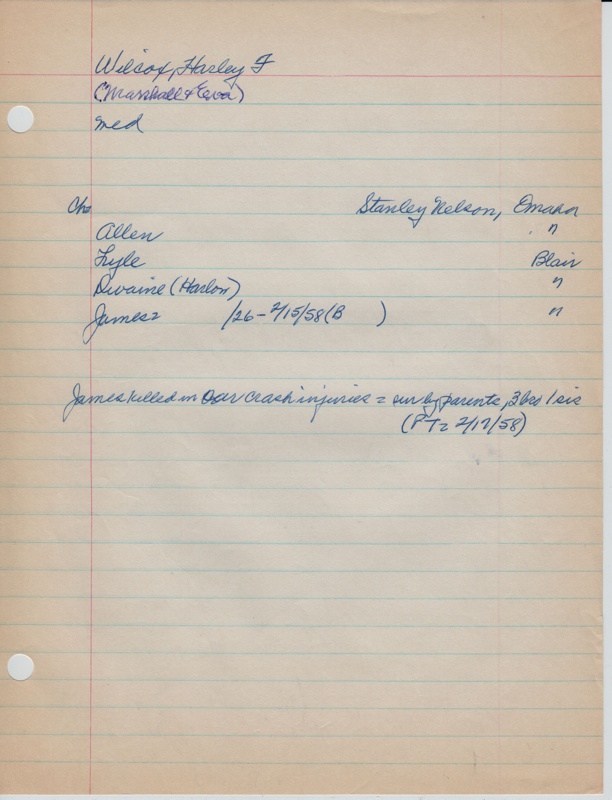 Wilcox, Harley F
(Marshall & Eva)
med
Ch= Stanley Nelson, Omaha
Allen "
Lyle Blair
Dwaine (Harlon) "
James= /26 - 2/15/58 (B ) "
James killed in car crash injuries = sur by parents, 3 bro 1 sis
(PT= 2/17/58)